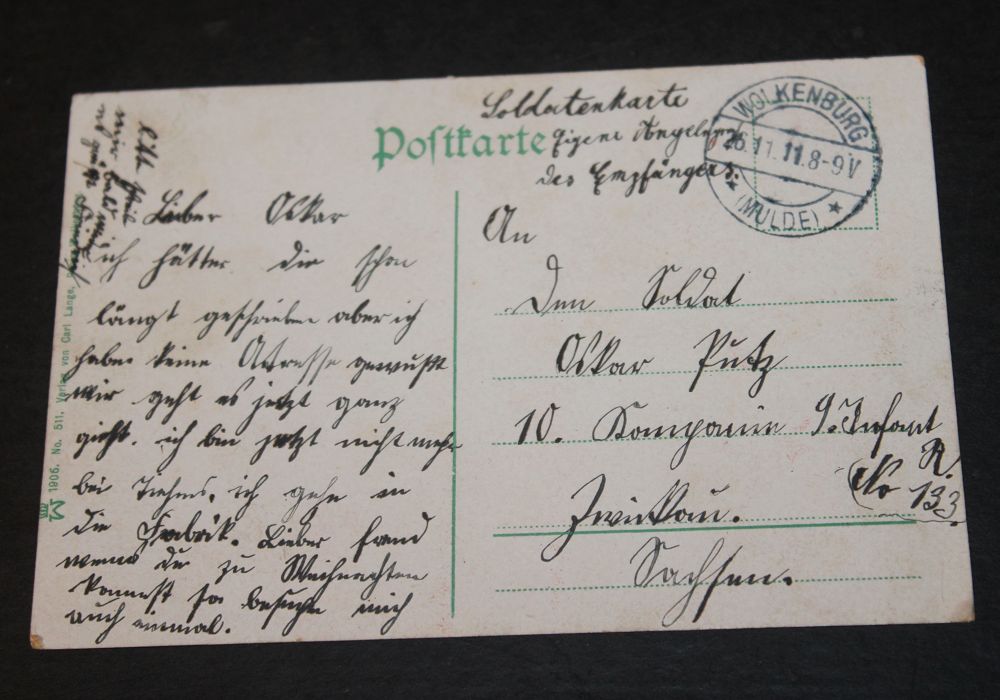 Soldatenkarte
Postkarte Eigene Angelegenh.
des Empfängers.
WOLKENBURG
26.11.11.8-9V
★ (MULDE) ★
Lieber Oskar
ich hätte dir schon
längst geschrieben aber ich
habe keine Adresse gewußt
mir geht es jetzt ganz
gut. ich bin jetzt nicht mehr
bei ich gehe in
die Fabrik. Lieber Freund
wenn du zu Weihnachten
kommst so besuche mich
auch einmal.
An
Den Soldat
Oskar Putz
10. Kompanie 9. Infant
R.
No 133
Zwickau.
Sachsen.
1906. No. 511. Verlag von Carl Lange,